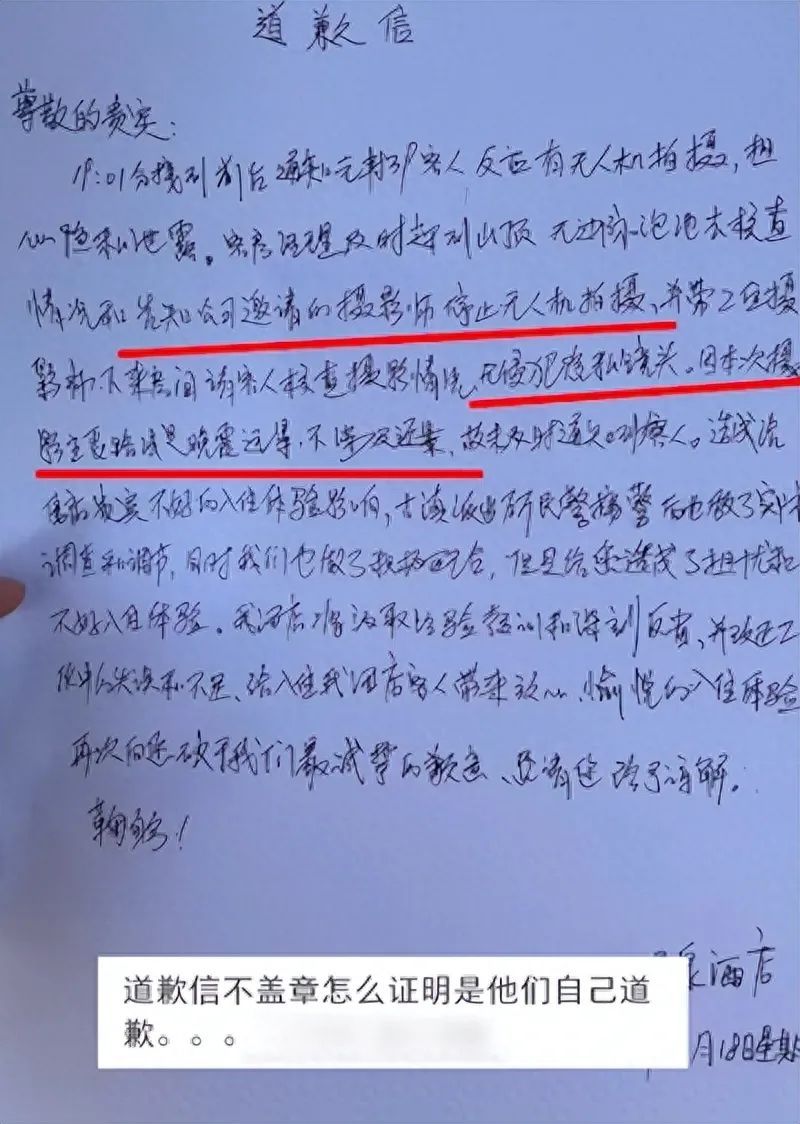 道歉信
尊敬的贵宾:
19:01分接到前台通知元朗39客人反应有无人机拍摄,担
心隐私泄露。客房经理及时赶到山顶无边际泡池去核查
情况和告知公司邀请的摄影师停止无人机拍摄、并带工作摄
影师下来房间请客人核查摄影情况,无侵犯隐私镜头。因本次摄
影主要给我是晚霞远景,不涉及近景、故未及时通知到客人。造成
贵宾不好的入住体验影响,古演派出所民警接警后也做了实情
调查和调节,同时我们也做了积极配合,但是给您造成了担忧和
不好入住体验。我酒店将汲取经验教训和深刻反省、并改进工
作中的失误和不足、给入住我酒店客人带来放心、愉悦的入住体验
再次向您致于我们最诚挚的歉意、还请您给予谅解。
鞠躬!
泉酒店
月18日星期
道歉信不盖章怎么证明是他们自己道
歉。。。